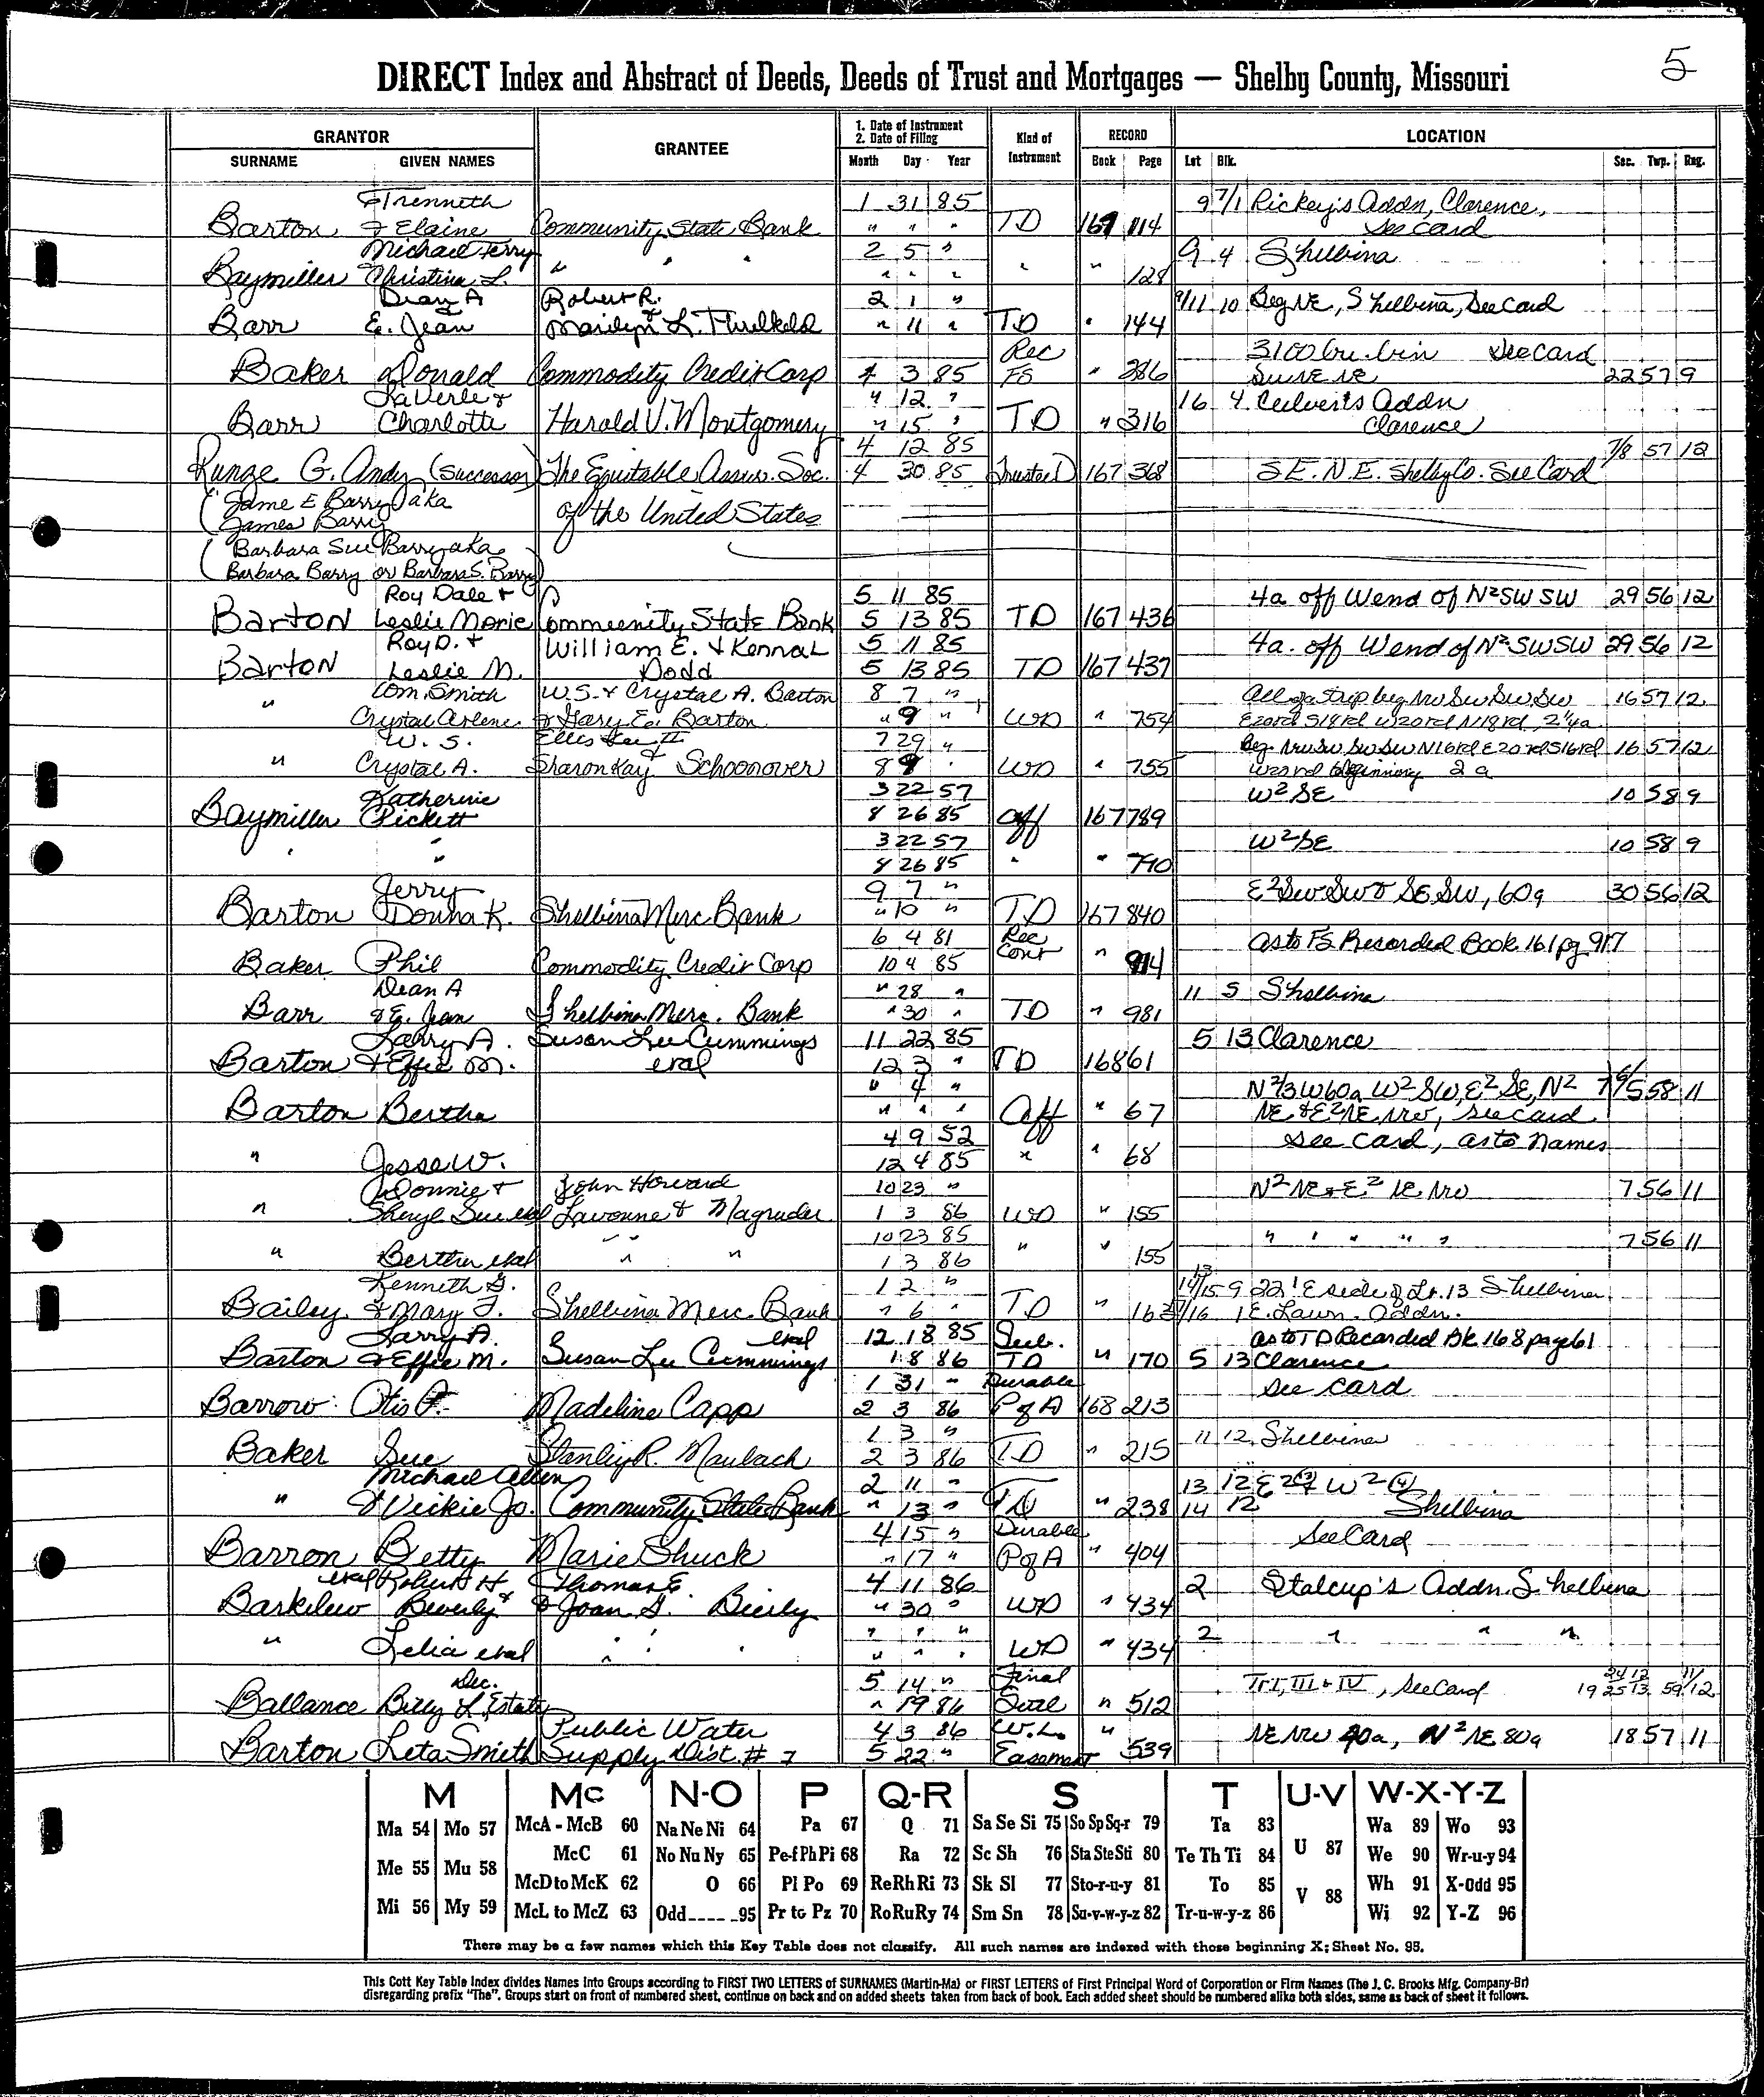 5
DIRECT Index and Abstract of Deeds, Deeds of Trust and Mortgages — Shelby County, Missouri
GRANTOR GRANTEE 1. Date of Instrument 2. Date of Filing Kind of Instrument RECORD LOCATION
SURNAME GIVEN NAMES Month Day Year Book Page Lot Blk. Sec. Twp. Rng.
Trenneth 1 31 85 9 7/1 Rickey's Addn, Clarence,
Barton & Elaine Community State Bank " " " TD 167 114 See Card
Michael Terry 2 5 " 9 4 Shelbina
Baymiller Christina L. " " " " " " " " 128
Dean A Robert R. 2 1 " 9/11 10 Beg NE, Shelbina, See Card
Barr & E. Jean & Marilyn L. Thulkeld " 11 " TD " 144
Rec 3100 bu. bin See Card
Baker Donald Commodity Credit Corp 4 3 85 FS " 286 SW NE NE 22 57 9
LaVerle & " 12 " 16 4 Culvert's Addn
Barr Charlotte Harold V. Montgomery " 15 " TD " 316 Clarence
4 12 85 7/8 57 12
Runge G. Andy (Successor) The Equitable Assur. Soc. 4 30 85 Trustee D 167 368 S.E. N.E. Shelby Co. See Card
(Jame E Barry aka of the United States
James Barry
(Barbara Sue Barry aka
Barbara Barry or Barbara S. Barry)
Roy Dale & 5 11 85 4a off W end of N2 SW SW 29 56 12
Barton Leslie Marie Community State Bank 5 13 85 TD 167 436
Roy D. & William E. & Kenna L 5 11 85 4a. off W end of N2 SW SW 29 56 12
Barton Leslie M. Dodd 5 13 85 TD 167 437
Wm. Smith W.S. & Crystal A. Barton 8 7 " All of a strip beg NW SW SW SW 16 57 12
" Crystal Arlene & Gary E. Barton " 9 " WD " 754 E20rd S18rd W20rd N18rd, 2¼a
W. S. Ellis Lee II 7 29 " Beg. NW SW SW SW N16rd E20rd S16rd 16 57 12
" Crystal A. & Sharon Kay Schoonover 8 9 " WD " 755 W20rd beginning 2 a
Katherine 3 22 57 W2 SE 10 58 9
Baymiller Pickett 8 26 85 Aff 167 789
3 22 57 W2 SE 10 58 9
" " 8 26 85 " " 790
Jerry 9 7 " E2 SW SW & SE SW, 60a 30 56 12
Barton Donna K. Shelbina Merc. Bank " 10 " TD 167 840
6 4 81 Rec As to FS Recorded Book 161 pg 917
Baker Phil Commodity Credit Corp 10 4 85 Cont " 914
Dean A " 28 " 11 5 Shelbina
Barr & E. Jean Shelbina Merc. Bank " 30 " TD " 981
Larry A. Susan Lee Cummings 11 22 85 5 13 Clarence
Barton & Effie M. etal 12 3 " TD 168 61
" 4 " N2/3 W60a W2 SW, E2 SE, N2 58 11
Barton Bertha " " " Aff " 67 NE & E2 NE NW, See Card
4 9 52 See Card, as to names
" Jesse W. 12 4 85 " " 68
Donnie & John Howard 10 23 " N2 NE & E2 NE NW 7 56 11
" Sheryl Sue etal Lavonne & Magruder 1 3 86 WD " 155
10 23 85 " " " " " 7 56 11
" Bertha etal " " 1 3 86 " " 155
Kenneth G. 1 2 " 13 14/15 9 22' E side of Lt. 13 Shelbina
Bailey & Mary J. Shelbina Merc. Bank " 6 " TD " 163 1/16 1 E. Lawn. Addn.
Larry A. etal 12 18 85 Sub. As to TD Recorded Bk 168 page 61
Barton & Effie M. Susan Lee Cummings 1 8 86 TD " 170 5 13 Clarence
1 31 " Durable See Card
Barrow Otis P. Madeline Capp 2 3 86 P of A 168 213
1 3 " 11 12 Shelbina
Baker Sue Stanley R. Maubach 2 3 86 TD " 215
Michael Allen 2 11 " 13 12 E2 (3) W2 (4)
" & Vickie Jo. Community State Bank " 13 " TD " 238 14 12 Shelbina
4 15 " Durable See Card
Barron Betty Marie Shuck " 17 " P of A " 404
etal Robert H. Thomas E. 4 11 86 2 Stalcup's Addn. Shelbina
Barkelew Beverly & & Joan G. Bierly " 30 " WD " 434
" " " 2 " " "
" Lelia etal " " " " " " WD " 434
Dec. 5 14 " Final Tr I, III & IV, See Card
Ballance Billy L Estate " 19 86 Settl " 512
Public Water 4 3 86 W.L. " NE NW 40a, N2 NE 80a 18 57 11
Barton Leta Smith Supply Dist. # 1 5 22 " Easement 539
M Mc N-O P Q-R S T U-V W-X-Y-Z
Ma 54 Mo 57 McA - McB 60 Na Ne Ni 64 Pa 67 Q 71 Sa Se Si 75 So Sp Sq-r 79 Ta 83 Wa 89 Wo 93
Me 55 Mu 58 McC 61 No Nu Ny 65 Pe-f Ph Pi 68 Ra 72 Sc Sh 76 Sta Ste Sti 80 Te Th Ti 84 U 87 We 90 Wr-u-y 94
McD to McK 62 O 66 Pl Po 69 Re Rh Ri 73 Sk Sl 77 Sto-r-u-y 81 To 85 V 88 Wh 91 X-Odd 95
Mi 56 My 59 McL to McZ 63 Odd_____95 Pr to Pz 70 Ro Ru Ry 74 Sm Sn 78 Su-v-w-y-z 82 Tr-u-w-y-z 86 Wi 92 Y-Z 96
There may be a few names which this Key Table does not classify. All such names are indexed with those beginning X; Sheet No. 95.
This Cott Key Table Index divides Names into Groups according to FIRST TWO LETTERS of SURNAMES (Martin-Ma) or FIRST LETTERS of First Principal Word of Corporation or Firm Names (The J. C. Brooks Mfg. Company-Br)
disregarding prefix "The". Groups start on front of numbered sheet, continue on back and on added sheets taken from back of book. Each added sheet should be numbered alike both sides, same as back of sheet it follows.